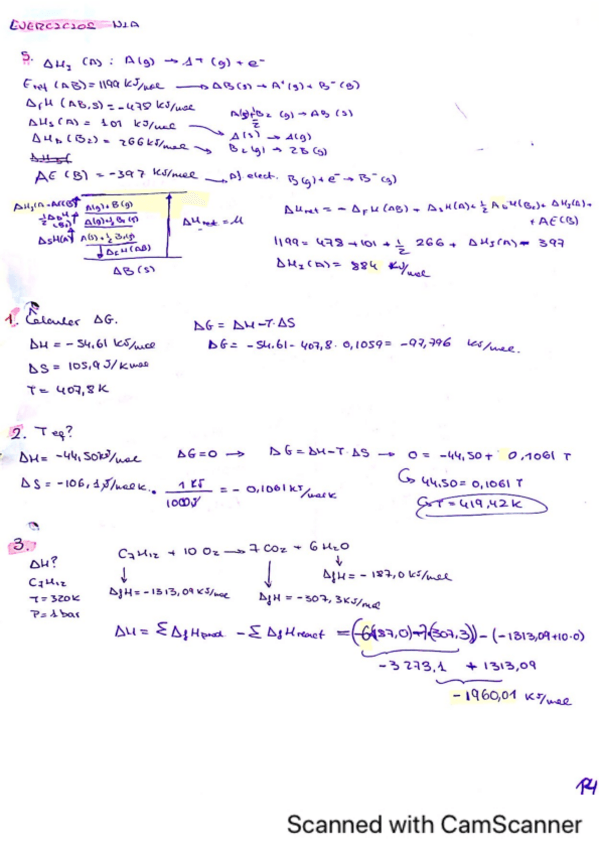 EJERCICIOS N1A
5. ΔH₂ (A) : A(g) → A⁺ (g) + e⁻
E (AB) = 1199 KJ/mol → AB(s) → A⁺(g) + B⁻(g)
ΔfH (AB,s) = -478 KJ/mol A(s)+½B₂ (g) → AB (s)
ΔHs(A) = 101 KJ/mol → A(s) → A(g)
ΔHD (B₂) = 266 KJ/mol → B₂(g) → 2B(g)
AE (B) = -397 KJ/mol → Af elect. B(g) + e⁻ → B⁻(g)
A(g) + B(g)
½ΔDH (B₂) A(g)+½B₂(g) ΔHret = U
ΔSH(A) A(s) + ½B₂(g)
↓ΔfH(AB)
AB (s)
ΔHret = -ΔfH(AB) + ΔSH(A) + ½ΔDH(B₂) + ΔHI(A) + AE(B)
1199 = 478 + 101 + ½ 266 + ΔHI(A) - 397
ΔHI(A) = 884 KJ/mol
1. Calcular ΔG.
ΔH = -54,61 KJ/mol
ΔS = 105,9 J/K mol
T = 407,8 K
ΔG = ΔH - T·ΔS
ΔG = -54,61 - 407,8 · 0,1059 = -97,796 KJ/mol.
2. T eq?
ΔH = -44,50 KJ/mol ΔG = 0 → ΔG = ΔH - T·ΔS → 0 = -44,50 + 0,1061 T
ΔS = -106,1 J/molK · 1 KJ / 1000J = -0,1061 KJ/molK
44,50 = 0,1061 T
T = 419,42 K
3.
ΔH?
C₇H₁₂
T = 320K
P = 1 bar
C₇H₁₂ + 10 O₂ → 7 CO₂ + 6 H₂O
ΔfH = -187,0 KJ/mol
ΔfH = -1313,09 KJ/mol ΔfH = -307,3 KJ/mol
ΔH = ΣΔfHprod - ΣΔfHreact = (-6(187,0) - 7(307,3)) - (-1313,09 + 10·0)
-3273,1 + 1313,09
-1960,01 KJ/mol
14
Scanned with CamScanner